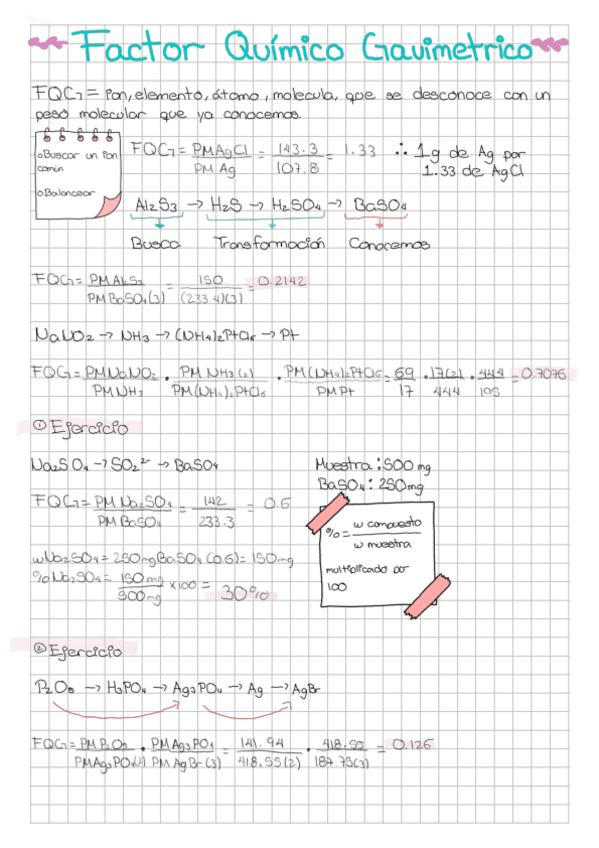 Factor Químico Gavimetrico
FQG = ion, elemento, átomo, molecula, que se desconoce con un
peso molecular que ya conocemos.
o Buscar un ion
común
o Balancear
FQG = PMAgCl / PM Ag = 143.3 / 107.8 = 1.33 ∴ 1g de Ag por
1.33 de AgCl
Al2S3 → H2S → H2SO4 → BaSO4
Busca Transformación Conocemos
FQG = PM Al2S3 / PM BaSO4(3) = 150 / (233.4)(3) = 0.2142
NaNO2 → NH3 → (NH4)2PtCl6 → Pt
FQG = PMNaNO2 / PMNH3 · PM NH3(2) / PM(NH4)2PtCl6 · PM(NH4)2PtCl6 / PM Pt = 69 / 17 · 17(2) / 444 · 444 / 195 = 0.7076
① Ejercicio
Na2SO4 → SO2²⁻ → BaSO4
Muestra: 500 mg
BaSO4: 250mg
FQG = PM Na2SO4 / PM BaSO4 = 142 / 233.3 = 0.6
% = w compuesto / w muestra
multiplicado por
100
wNa2SO4 = 250mg BaSO4 (0.6) = 150mg
% Na2SO4 = 150 mg / 500mg × 100 = 30%
② Ejercicio
P2O5 → H3PO4 → Ag3PO4 → Ag → AgBr
FQG = PM P2O5 / PMAg3PO4(2) · PM Ag3PO4 / PM AgBr (3) = 141.94 / 418.55(2) · 418.55 / 187.75(3) = 0.126